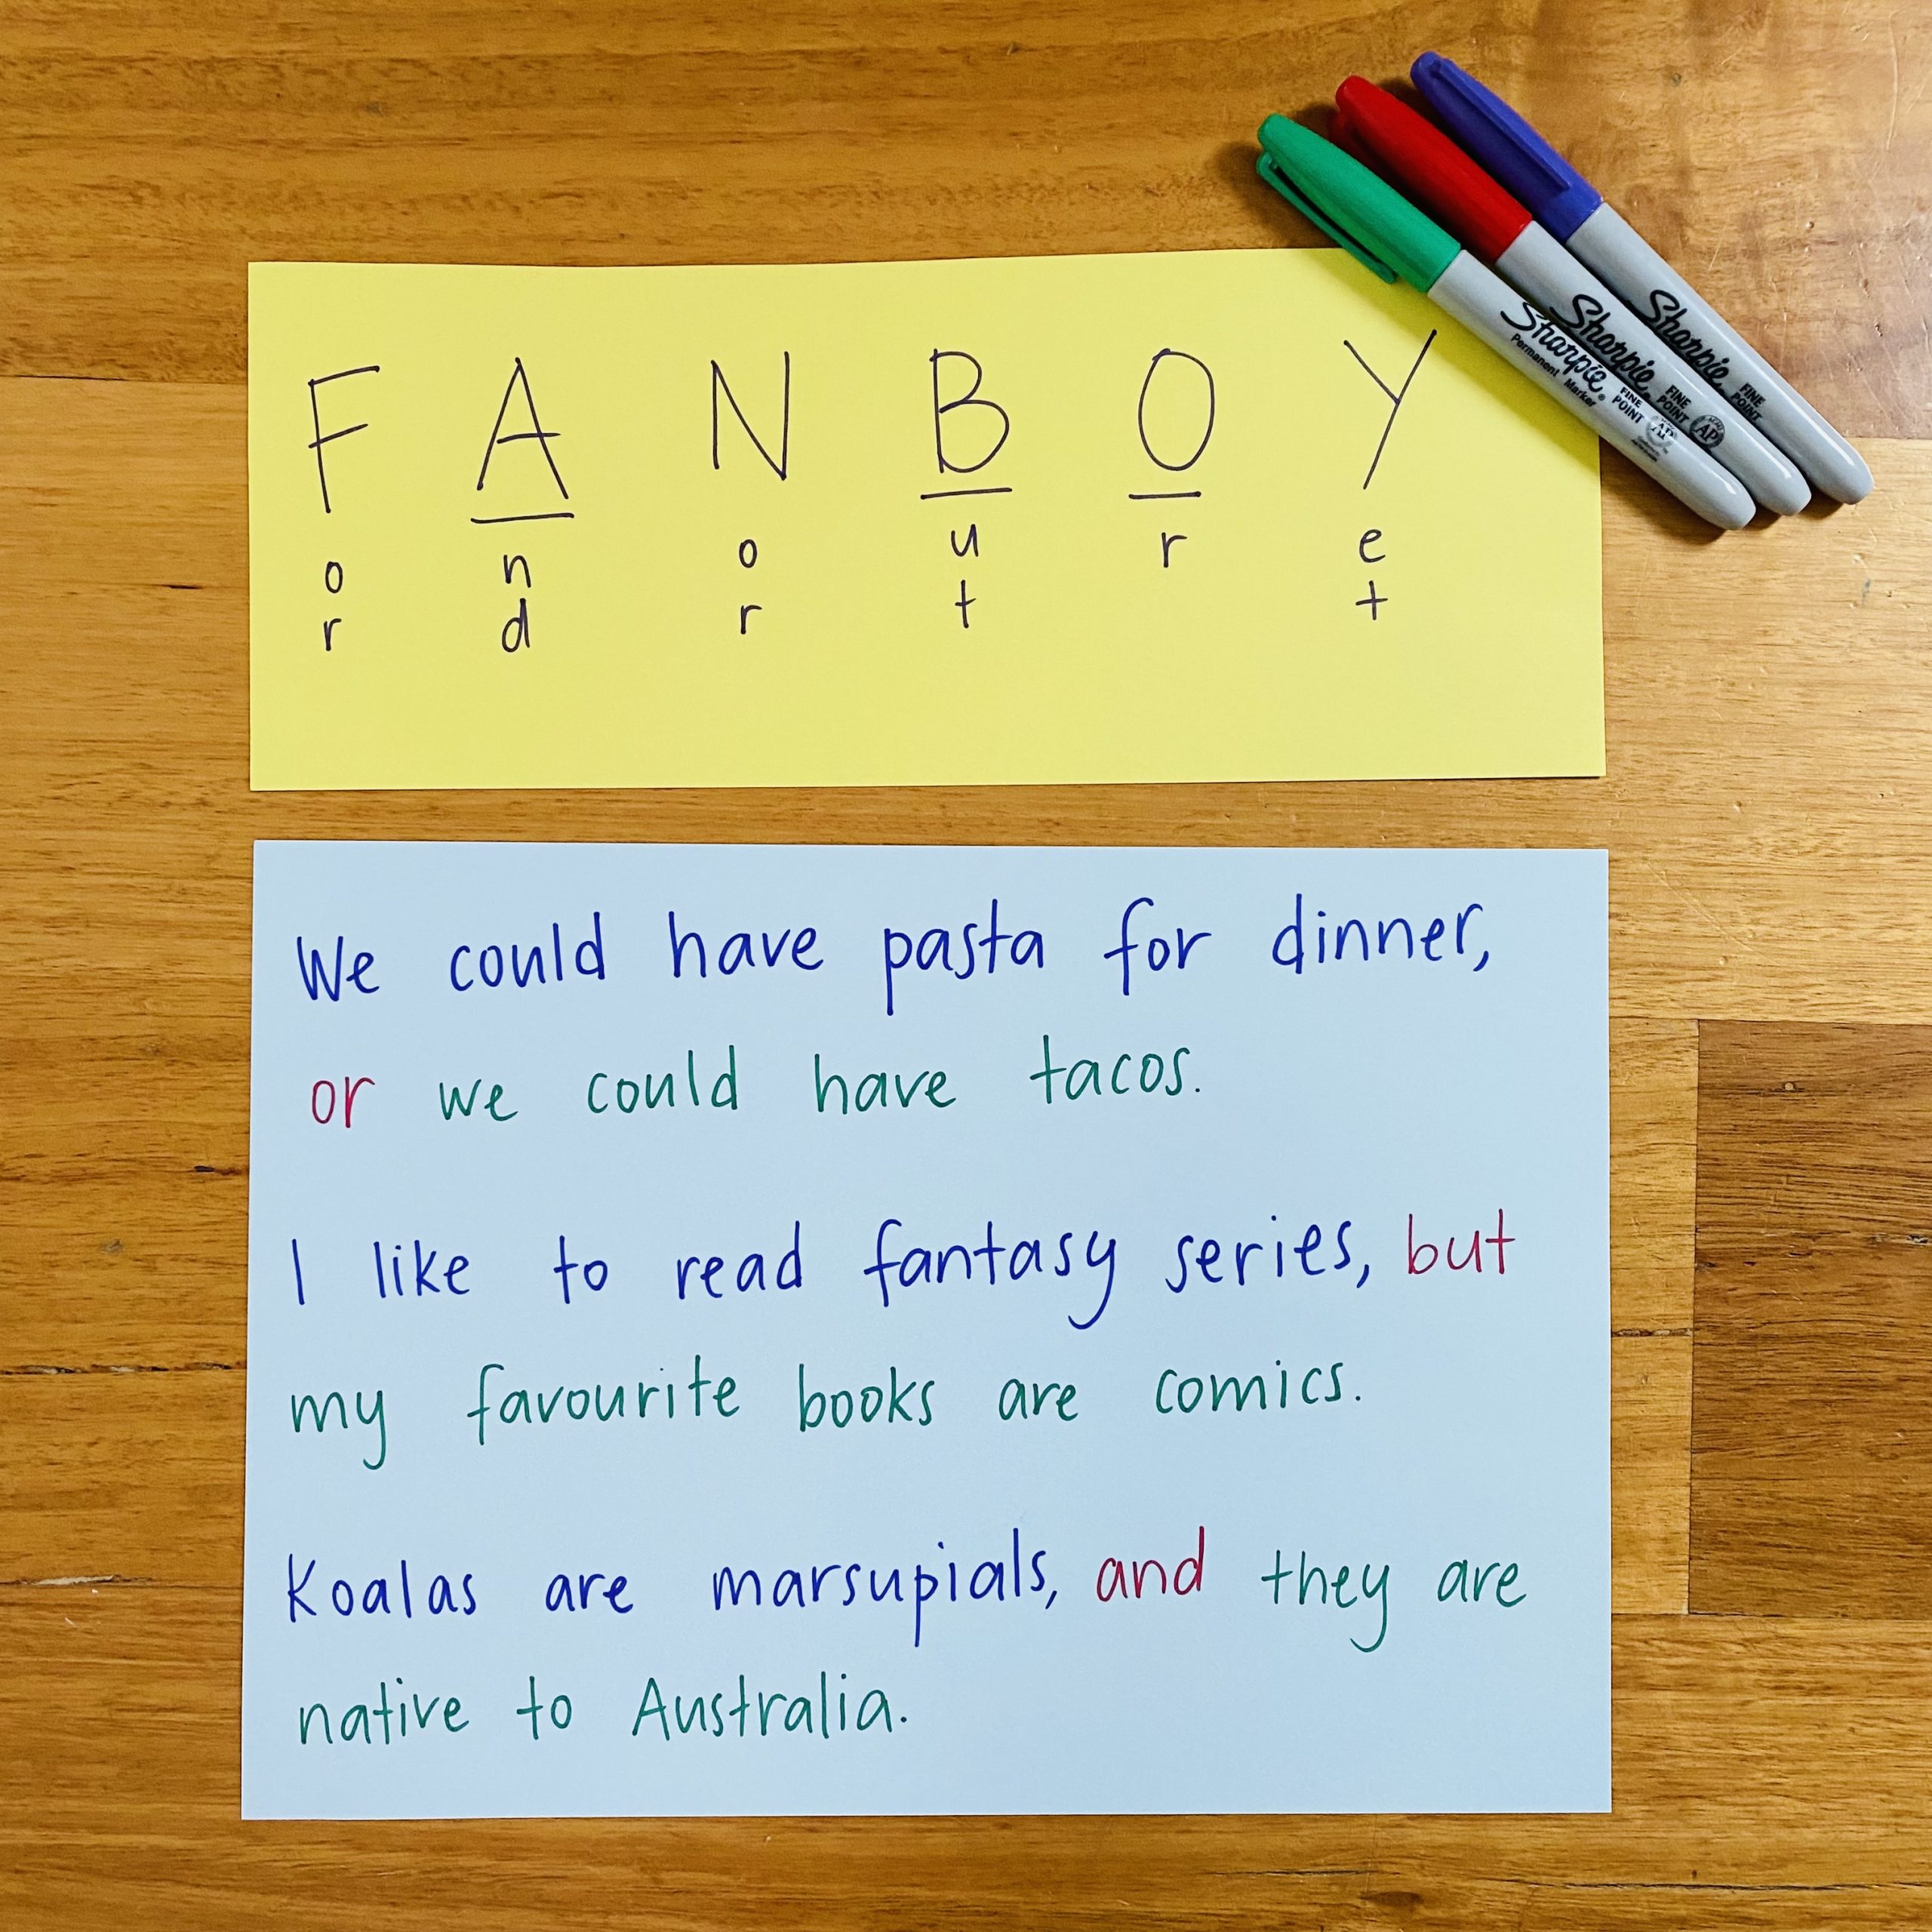 F A N B O Y
or nd or ut r et
We could have pasta for dinner,
or we could have tacos.
I like to read fantasy series, but
my favourite books are comics.
Koalas are marsupials, and they are
native to Australia.
Sharpie
Permanent Marker
FINE POINT
AP
Sharpie
FINE POINT
AP
Sharpie
FINE POINT